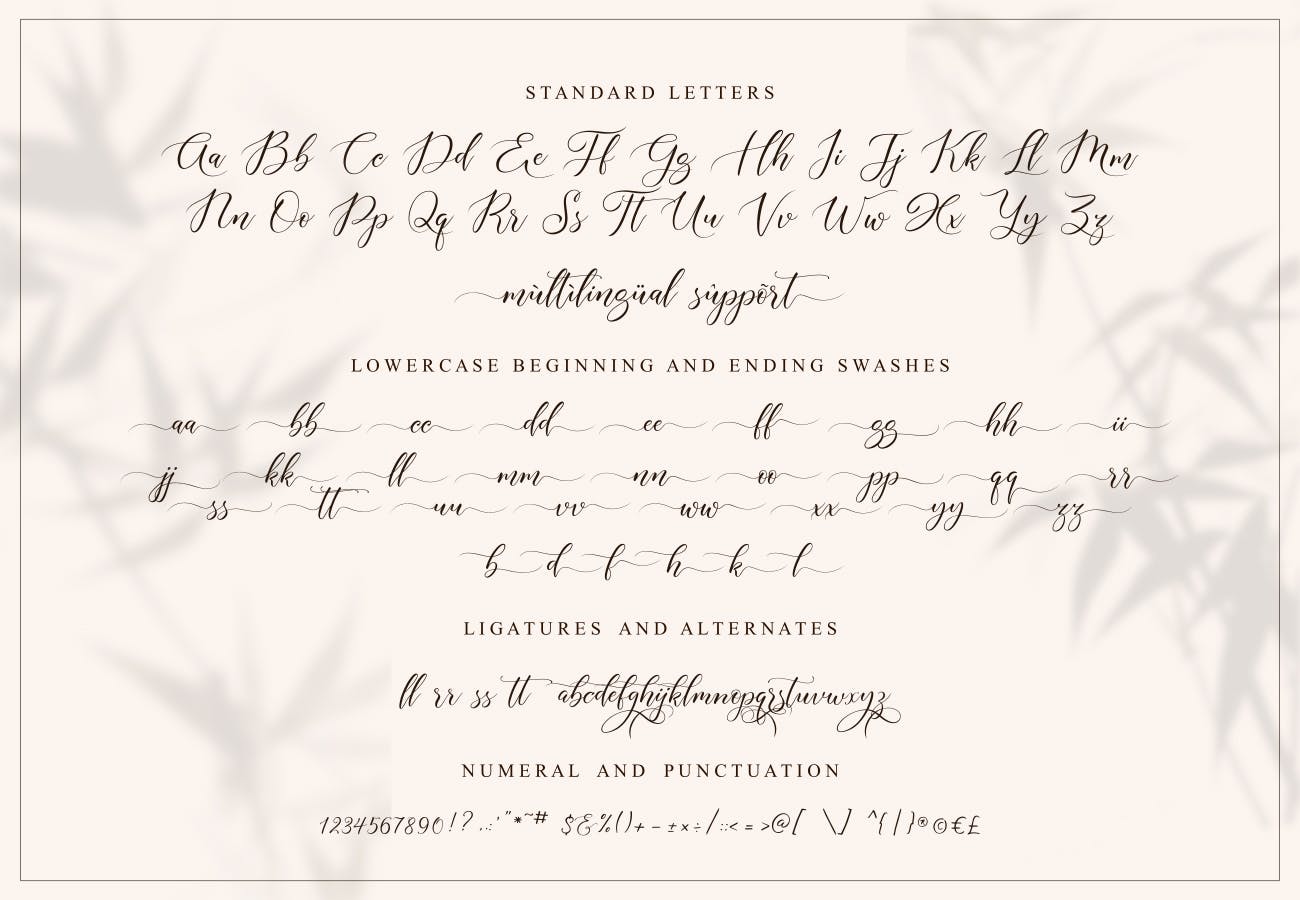 STANDARD LETTERS
Aa Bb Cc Dd Ee Ff Gg Hh Ii Jj Kk Ll Mm
Nn Oo Pp Qq Rr Ss Tt Uu Vv Ww Xx Yy Zz
mùltìlingüal sùppõrt
LOWERCASE BEGINNING AND ENDING SWASHES
aa bb cc dd ee ff gg hh ii
jj kk ll mm nn oo pp qq rr
ss tt uu vv ww xx yy zz
b d f h k l
LIGATURES AND ALTERNATES
ll rr ss tt abcdefghijklmnopqrstuvwxyz
NUMERAL AND PUNCTUATION
1234567890!? .,:;'"*~# $&%()+ - ±×÷/::< = >@[ \] ^{|}®©€£